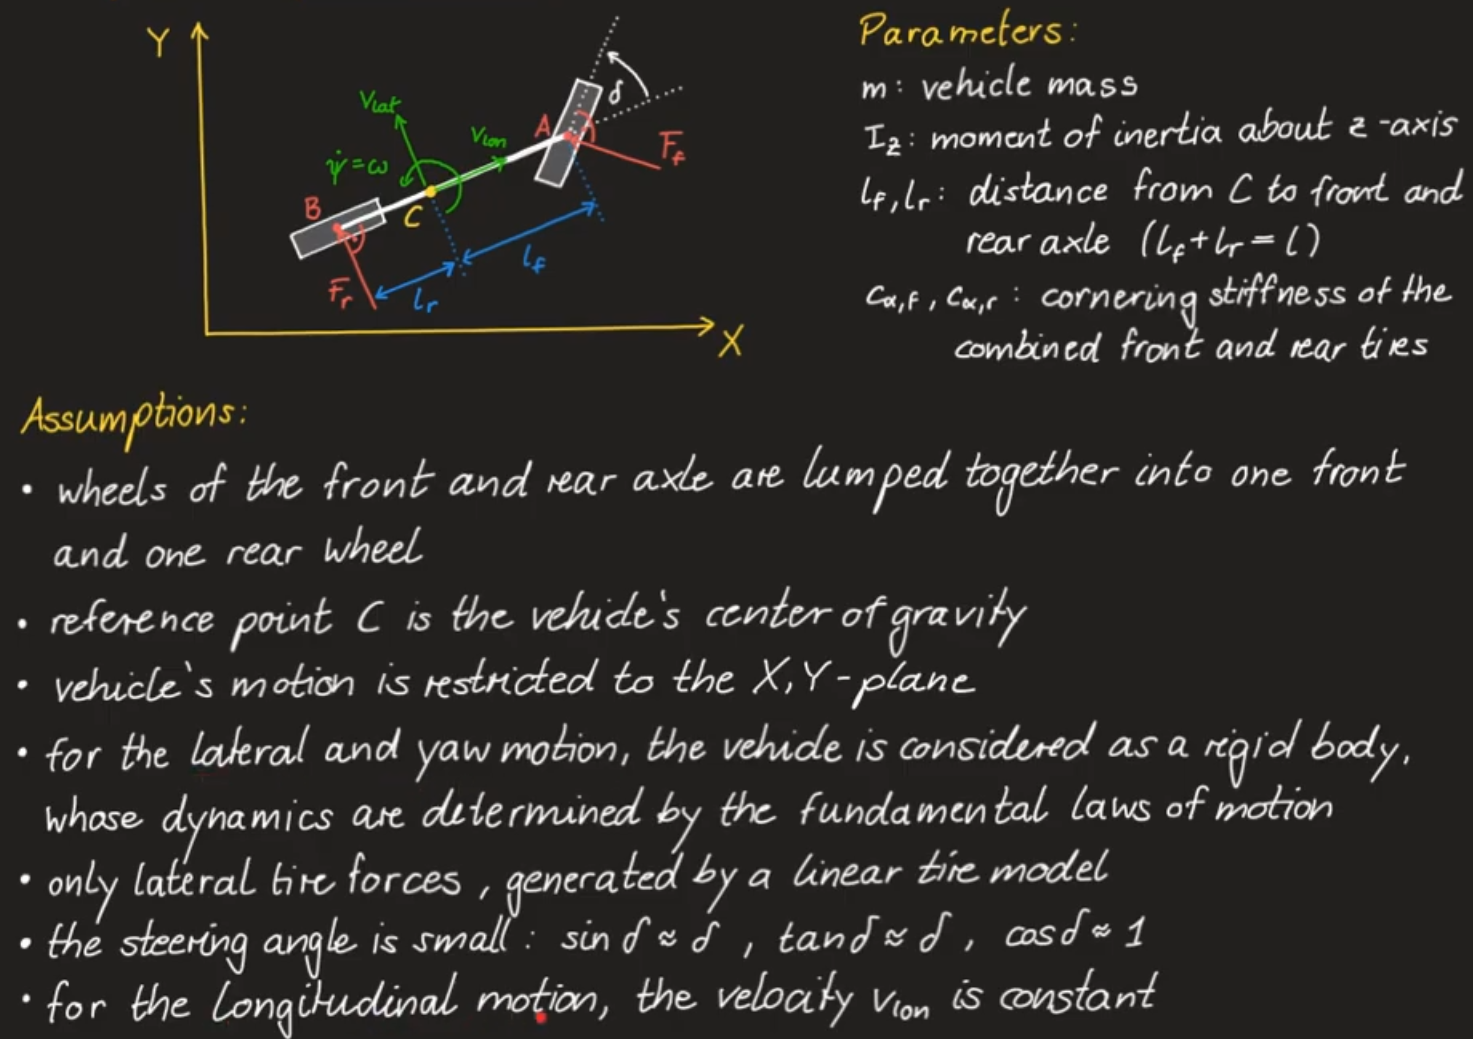 Y
X
V_lat
V_lon
ψ̇ = ω
A
B
C
δ
F_f
F_r
l_f
l_r
Parameters:
m: vehicle mass
I_z: moment of inertia about z-axis
l_f, l_r: distance from C to front and
rear axle (l_f + l_r = l)
c_α,f, c_α,r: cornering stiffness of the
combined front and rear tires
Assumptions:
• wheels of the front and rear axle are lumped together into one front
and one rear wheel
• reference point C is the vehicle's center of gravity
• vehicle's motion is restricted to the X,Y-plane
• for the lateral and yaw motion, the vehicle is considered as a rigid body,
whose dynamics are determined by the fundamental laws of motion
• only lateral tire forces, generated by a linear tire model
• the steering angle is small: sin δ ≈ δ, tan δ ≈ δ, cos δ ≈ 1
• for the longitudinal motion, the velocity v_lon is constant